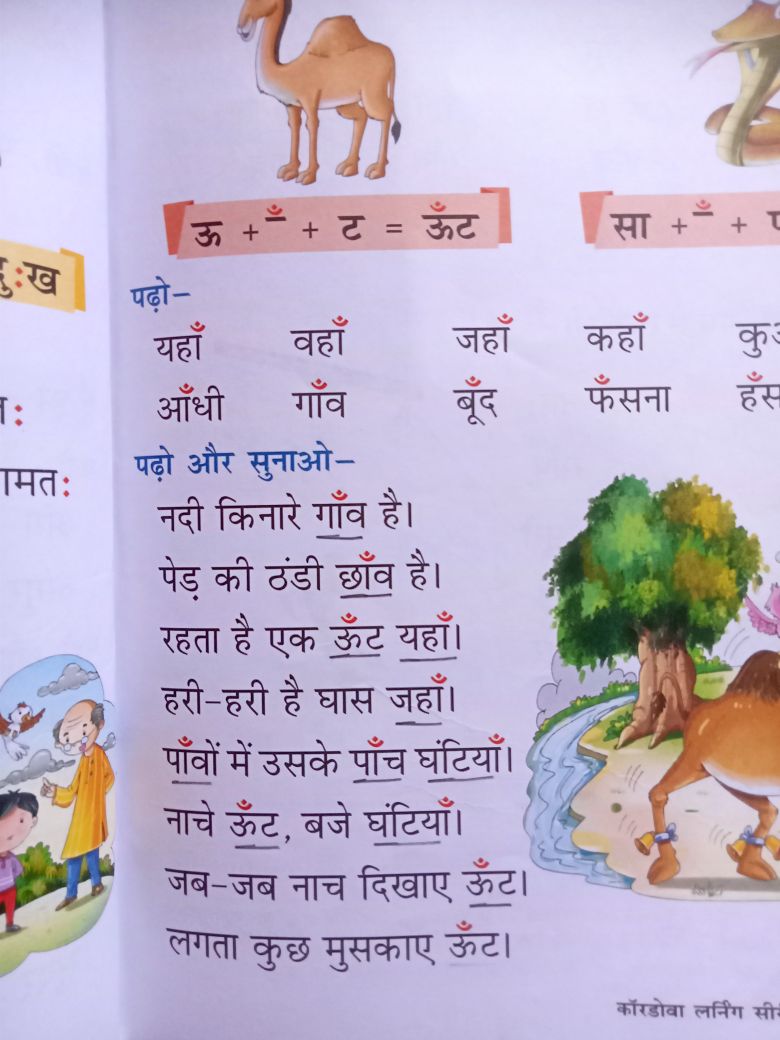 ऊ + ँ + ट = ऊँट
सा + ँ +
ःख
पढ़ो–
यहाँ वहाँ जहाँ कहाँ
आँधी गाँव बूँद फँसना
पढ़ो और सुनाओ–
नदी किनारे गाँव है।
पेड़ की ठंडी छाँव है।
रहता है एक ऊँट यहाँ।
हरी-हरी है घास जहाँ।
पाँवों में उसके पाँच घंटियाँ।
नाचे ऊँट, बजे घंटियाँ।
जब-जब नाच दिखाए ऊँट।
लगता कुछ मुसकाए ऊँट।
कॉरडोवा लर्निंग